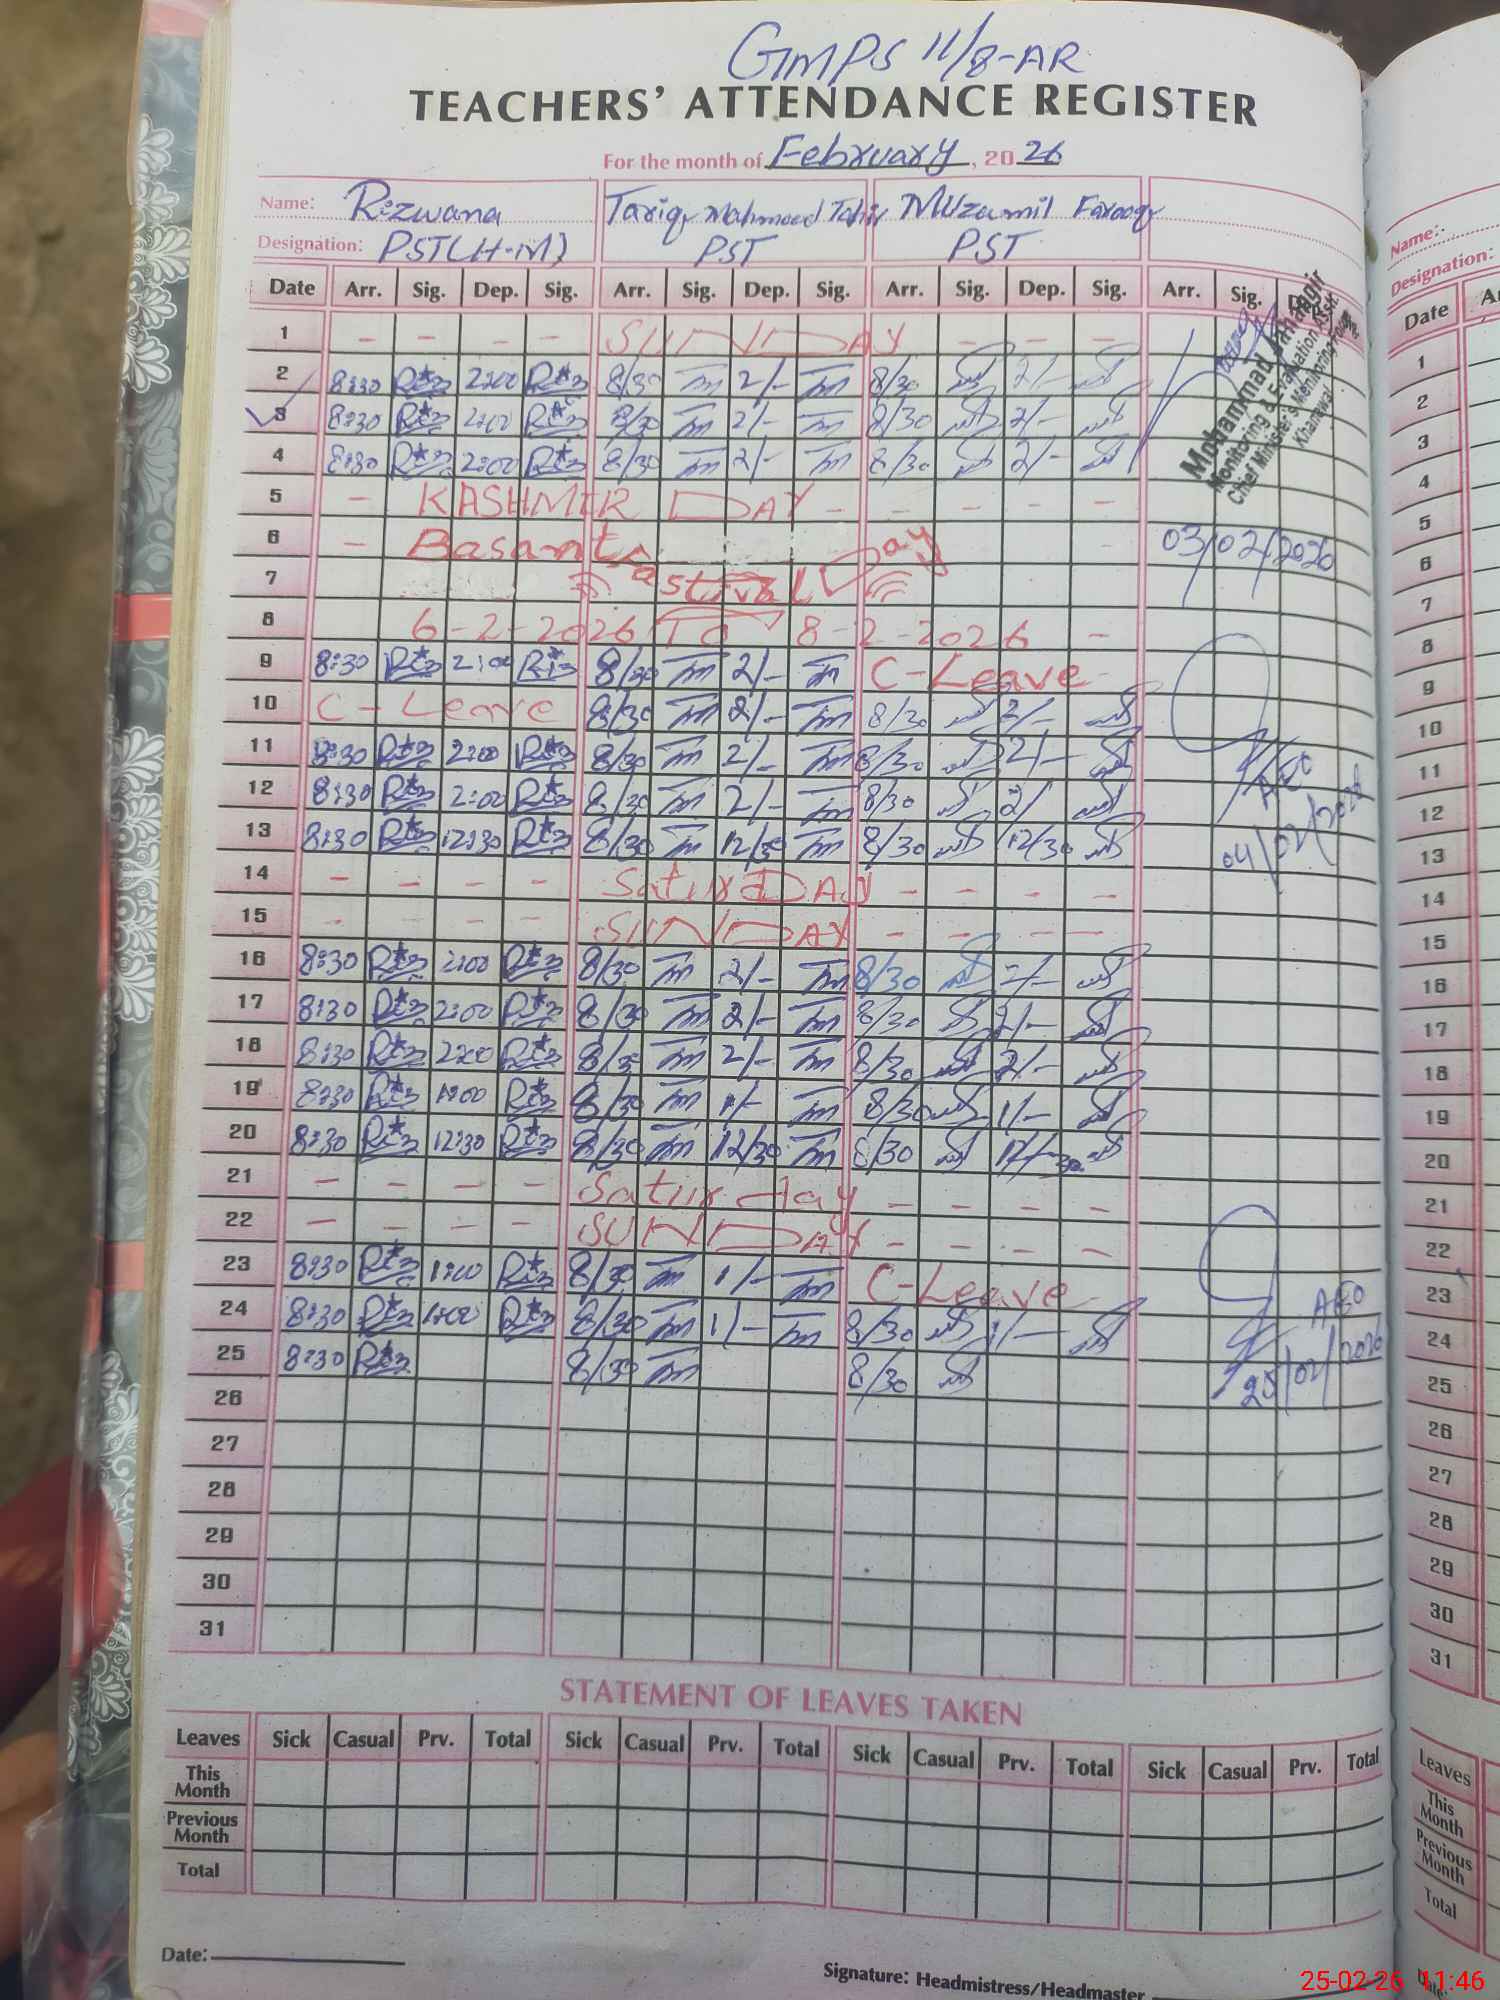 GMPS 11/8-AR
TEACHERS' ATTENDANCE REGISTER
For the month of February, 2026
Name: Rizwana Tariq Mahmood Tahir Muzamil Farooq
Designation: PST(H-M) PST PST
Date Arr. Sig. Dep. Sig. Arr. Sig. Dep. Sig. Arr. Sig. Dep. Sig. Arr. Sig.
1 - - - - SUNDAY - - - -
2 8:30 Riz 2:00 Riz 8/30 Tm 2/- Tm 8/30 2/-
3 8:30 Riz 2:00 Riz 8/30 Tm 2/- Tm 8/30 2/-
4 8:30 Riz 2:00 Riz 8/30 Tm 2/- Tm 8/30 2/-
5 - KASHMIR DAY - - - - -
6 - Basant Day -
7 Fastival
8 6-2-2026 TO 8-2-2026 -
9 8:30 Riz 2:00 Riz 8/30 Tm 2/- Tm C-Leave
10 C-Leave 8/30 Tm 2/- Tm 8/30 2/-
11 8:30 Riz 2:00 Riz 8/30 Tm 2/- Tm 8/30 2/-
12 8:30 Riz 2:00 Riz 8/30 Tm 2/- Tm 8/30 2/
13 8:30 Riz 12:30 Riz 8/30 Tm 12/30 Tm 8/30 12/30
14 - - - - SaturDAY - - - -
15 - - - - SUNDAY - - - -
16 8:30 Riz 2:00 Riz 8/30 Tm 2/- Tm 8/30 2/-
17 8:30 Riz 2:00 Riz 8/30 Tm 2/- Tm 8/30 2/-
18 8:30 Riz 2:00 Riz 8/30 Tm 2/- Tm 8/30 2/-
19 8:30 Riz 1:00 Riz 8/30 Tm 1/- Tm 8/30 1/-
20 8:30 Riz 12:30 Riz 8/30 Tm 12/30 Tm 8/30 12/30
21 - - - - Saturday - - - -
22 - - - - SUNDAY - - - -
23 8:30 Riz 1:00 Riz 8/30 Tm 1/- Tm C-Leave
24 8:30 Riz 1:00 Riz 8/30 Tm 1/- Tm 8/30 1/-
25 8:30 Riz 8/30 Tm 8/30
26
27
28
29
30
31
Mohammad Jahangir
Monitoring & Evaluation Asst.
Chief Minister's Monitoring Force
Khanewal
03/02/2026
AEO
04/02/2026
AEO
25/02/2026
STATEMENT OF LEAVES TAKEN
Leaves Sick Casual Prv. Total Sick Casual Prv. Total Sick Casual Prv. Total Sick Casual Prv. Total
This Month
Previous Month
Total
Date:
Signature: Headmistress/Headmaster
Name:
Designation:
Date
1
2
3
4
5
6
7
8
9
10
11
12
13
14
15
16
17
18
19
20
21
22
23
24
25
26
27
28
29
30
31
Leaves
This Month
Previous Month
Total
25-02-26 11:46